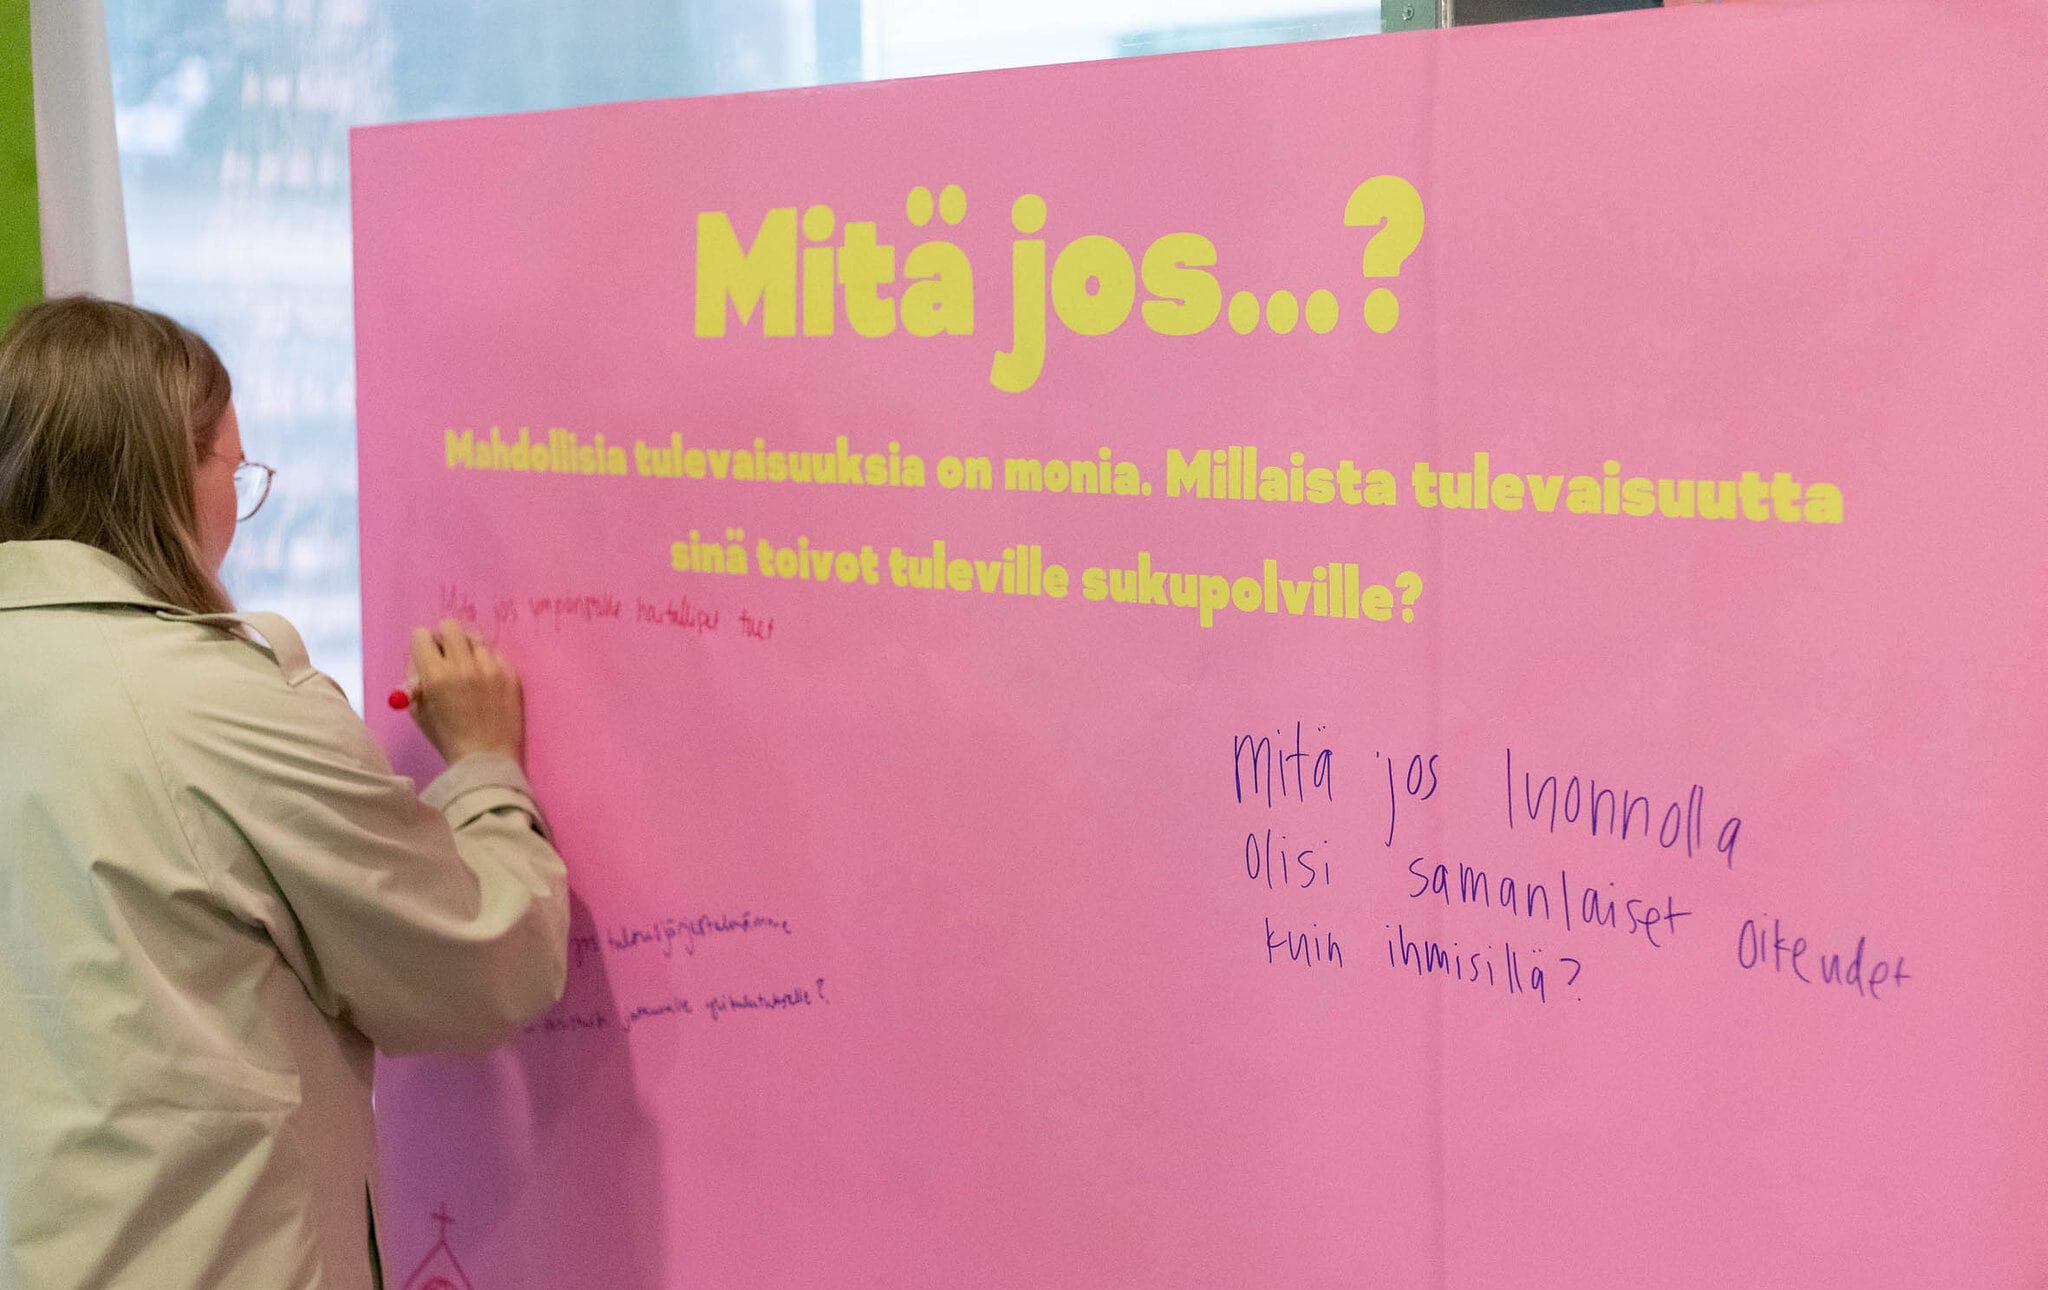 Mitä jos...?
Mahdollisia tulevaisuuksia on monia. Millaista tulevaisuutta
sinä toivot tuleville sukupolville?
Mitä jos ympäristölle haitalliset tuet
mitä jos luonnolla
olisi samanlaiset oikeudet
kuin ihmisillä?
jos talousjärjestelmämme
ylikulutukselle?